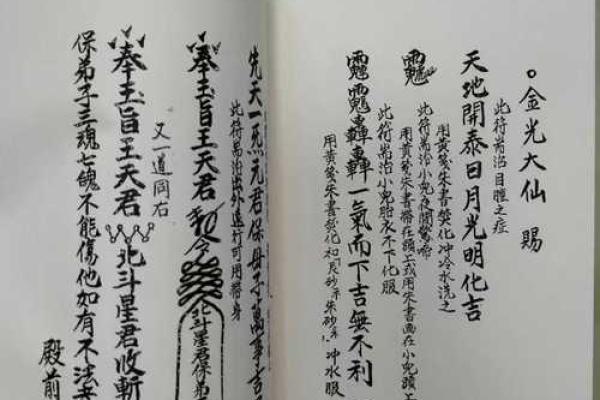 金光大仙 賜
此符耑治目瞳之症
天地開泰日月光明化吉
用黃箋朱書焚化冲冷水洗之
此符耑治小兒夜間驚啼
用黃箋朱書帶在頭上或用朱書画在小兒頭上
轟轟一氣而下吉無不利
此符耑治小兒胎衣不下化服
用黃箋朱書焚化和辰砂朱砂冲水服
先天一炁元君保母子萬事吉
此符耑治出外遠行可用帶身
奉玉旨王天君勅令
北斗星君保弟
又一道同右
奉玉旨王天君
北斗星君收斬
保弟子三魂七魄不能傷他如有不法
殿前